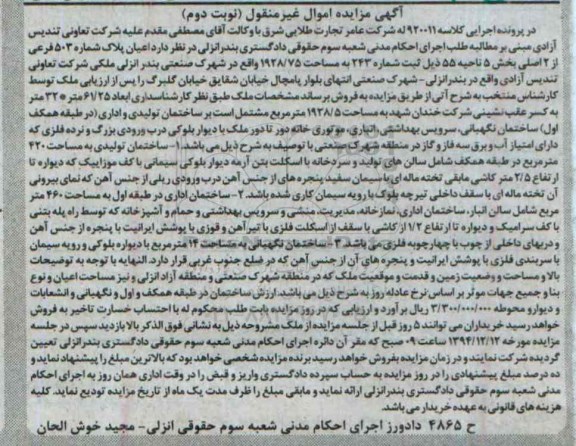 آگهی مزایده اموال غیرمنقول (نوبت دوم)
در پرونده اجرایی کلاسه ۹۲۰۰۱۱ له شرکت عامر تجارت طلایی شرق با وکالت آقای مصطفی مقدم علیه شرکت تعاونی تندیس
آزادی مبنی بر مطالبه طلب اجرای احکام مدنی شعبه سوم حقوقی دادگستری بندرانزلی در نظر دارد اعیان پلاک شماره ۵۰۳ فرعی
از ۲ اصلی بخش ۵ ناحیه ۵۵ ذیل ثبت شماره ۲۴۳ به مساحت ۱۹۲۸/۷۵ واقع در شهرک صنعتی بندر انزلی ملکی شرکت تعاونی
تندیس آزادی واقع در بندرانزلی- شهرک صنعتی انتهای بلوار پامچال خیابان شقایق خیابان گلبرگ را پس از ارزیابی ملک توسط
کارشناس منتخب به شرح آتی از طریق مزایده به فروش برساند مشخصات ملک طبق نظر کارشناسداری ابعاد ۶۱/۲۵ متر*۳۲ متر
به کسر عقب نشینی شرکت خندان شهد به مساحت ۱۹۳۸/۵ مترمربع مشتمل است بر ساختمان تولیدی و اداری (در طبقه همکف
اول) ساختمان نگهبانی، سرویس بهداشتی، انباری، موتوری خانه دور تا دور ملک با دیوار بلوکی درب ورودی بزرگ و نرده فلزی که
دارای امتیاز آب و برق سه فاز و گاز در منطقه شهرک صنعتی با توصیف به شرح ذیل می باشد. ۱- ساختمان تولیدی به مساحت ۴۲۰
مترمربع در طبقه همکف شامل سالن های تولید و سردخانه با اسکلت بتن آرمه دیوار بلوکی سیمانی با کف موزاییک که دیواره تا
ارتفاع ۲/۵ متر کاشی مابقی تخته ماله ای با سیمان سفید پنجره های از جنس آهن درب ورودی ریلی از جنس آهن که نمای بیرونی
آن تخته ماله ای با سقف داخلی تیرچه بلوک با رویه سیمان کاری شده باشد. ۲- ساختمان اداری در طبقه اول به مساحت ۴۶۰ متر
مربع شامل سالن انبار، ساختمان اداری، نمازخانه، مدیریت، منشی و سرویس بهداشتی و حمام و آشپزخانه که توسط راه پله بتنی
با کف سرامیک و دیواره تا ارتفاع ۱/۲ از کاشی با سقف از اسکلت فلزی با تیرآهن و قوزی با پوشش ایرانیت با پنجره از جنس آهن
و دربهای داخلی از چوب با چهارچوبه فلزی می باشد. ۳- ساختمان نگهبانی به مساحت ۱۴ مترمربع با دیواره بلوکی و رویه سیمان
با سربندی فلزی با پوشش ایرانیت و پنجره های آن از جنس آهن که در ضلع جنوب غربی قرار دارد. النهایه با توجه به توضیحات
بالا و مساحت و وضعیت زمین و قدمت و موقعیت ملک که در منطقه شهرک صنعتی و منطقه آزاد انزلی و نیز مساحت اعیان و نوع
بنا و جمیع جهات موثر بر اساس نرخ عادله روز به شرح ذیل می باشد. ارزش ساختمان در طبقه همکف و اول و نگهبانی و انشعابات
و دیوار و محوطه ۳/۳۰۰/۰۰۰/۰۰۰ ریال برآورد و ارزیابی که در روز مزایده بابت طلب محکوم له با احتساب خسارت تاخیر به فروش
خواهد رسید خریداران می توانند ۵ روز قبل از جلسه مزایده از ملک مشروحه ذیل به نشانی فوق الذکر بالا بازدید سپس در جلسه
مزایده مورخه ۱۳۹۴/۱۲/۱۲ ساعت ۰۹ صبح که مقر آن دائره اجرای احکام مدنی شعبه سوم حقوقی دادگستری بندرانزلی تعیین
گردیده شرکت نمایند و در زمان مزایده بفروش خواهد رسید برنده مزایده شخصی خواهد بود که بالاترین مبلغ را پیشنهاد نماید و
ده درصد مبلغ پیشنهادی را در روز مزایده به حساب سپرده دادگستری واریز و قبض را در وقت اداری همان روز به اجرای احکام
مدنی شعبه سوم حقوقی دادگستری بندرانزلی ارائه نماید و مابقی مبلغ را ظرف مدت یک ماه از تاریخ مزایده تودیع نماید. کلیه
هزینه های قانونی به عهده خریدار می باشد.
ح ۴۸۶۵ دادورز اجرای احکام مدنی شعبه سوم حقوقی انزلی- مجید خوش الحان